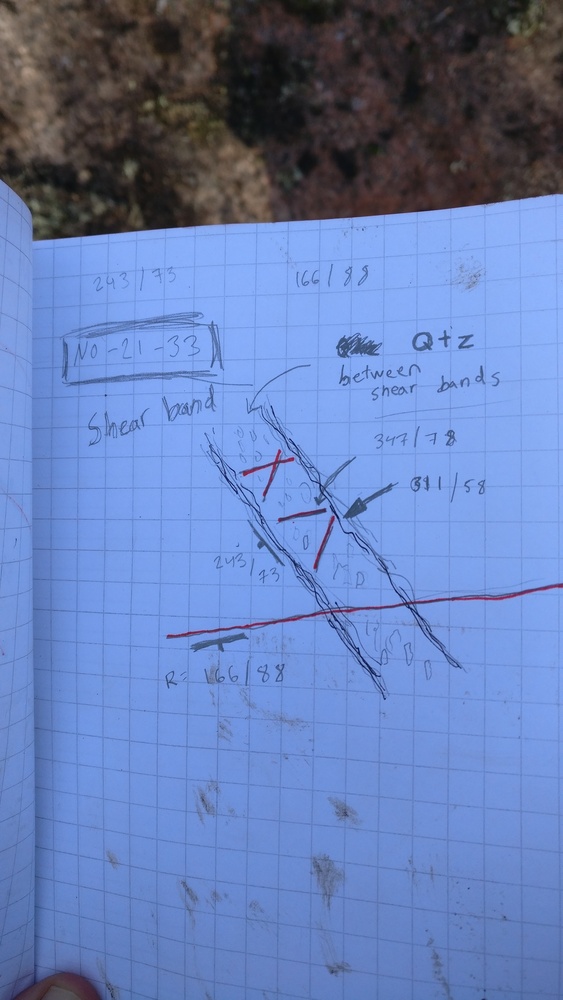 243/73
166/88
NO-21-33
Qtz
between
shear bands
Shear band
347/78
311/58
243/73
R= 166/88